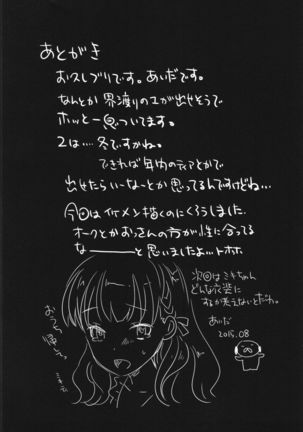 あとがき
お久しぶりです。あいだです。
なんとか界渡りのユが出せそうで
ホッと一息ついてます。
2は‥‥冬ですかね。
できれば年内のティアとかで
出せたらいーなーとか思ってるんですけどね…
今回はイケメン描くのにくろうしました
オークとかおっさんの方が性に合ってる
なーーーーーと思いましたよ…トホホ
次回はミキちゃん
どんな衣装に
するか考えないとだわ。
あいだ
2015.08
おうち帰して。